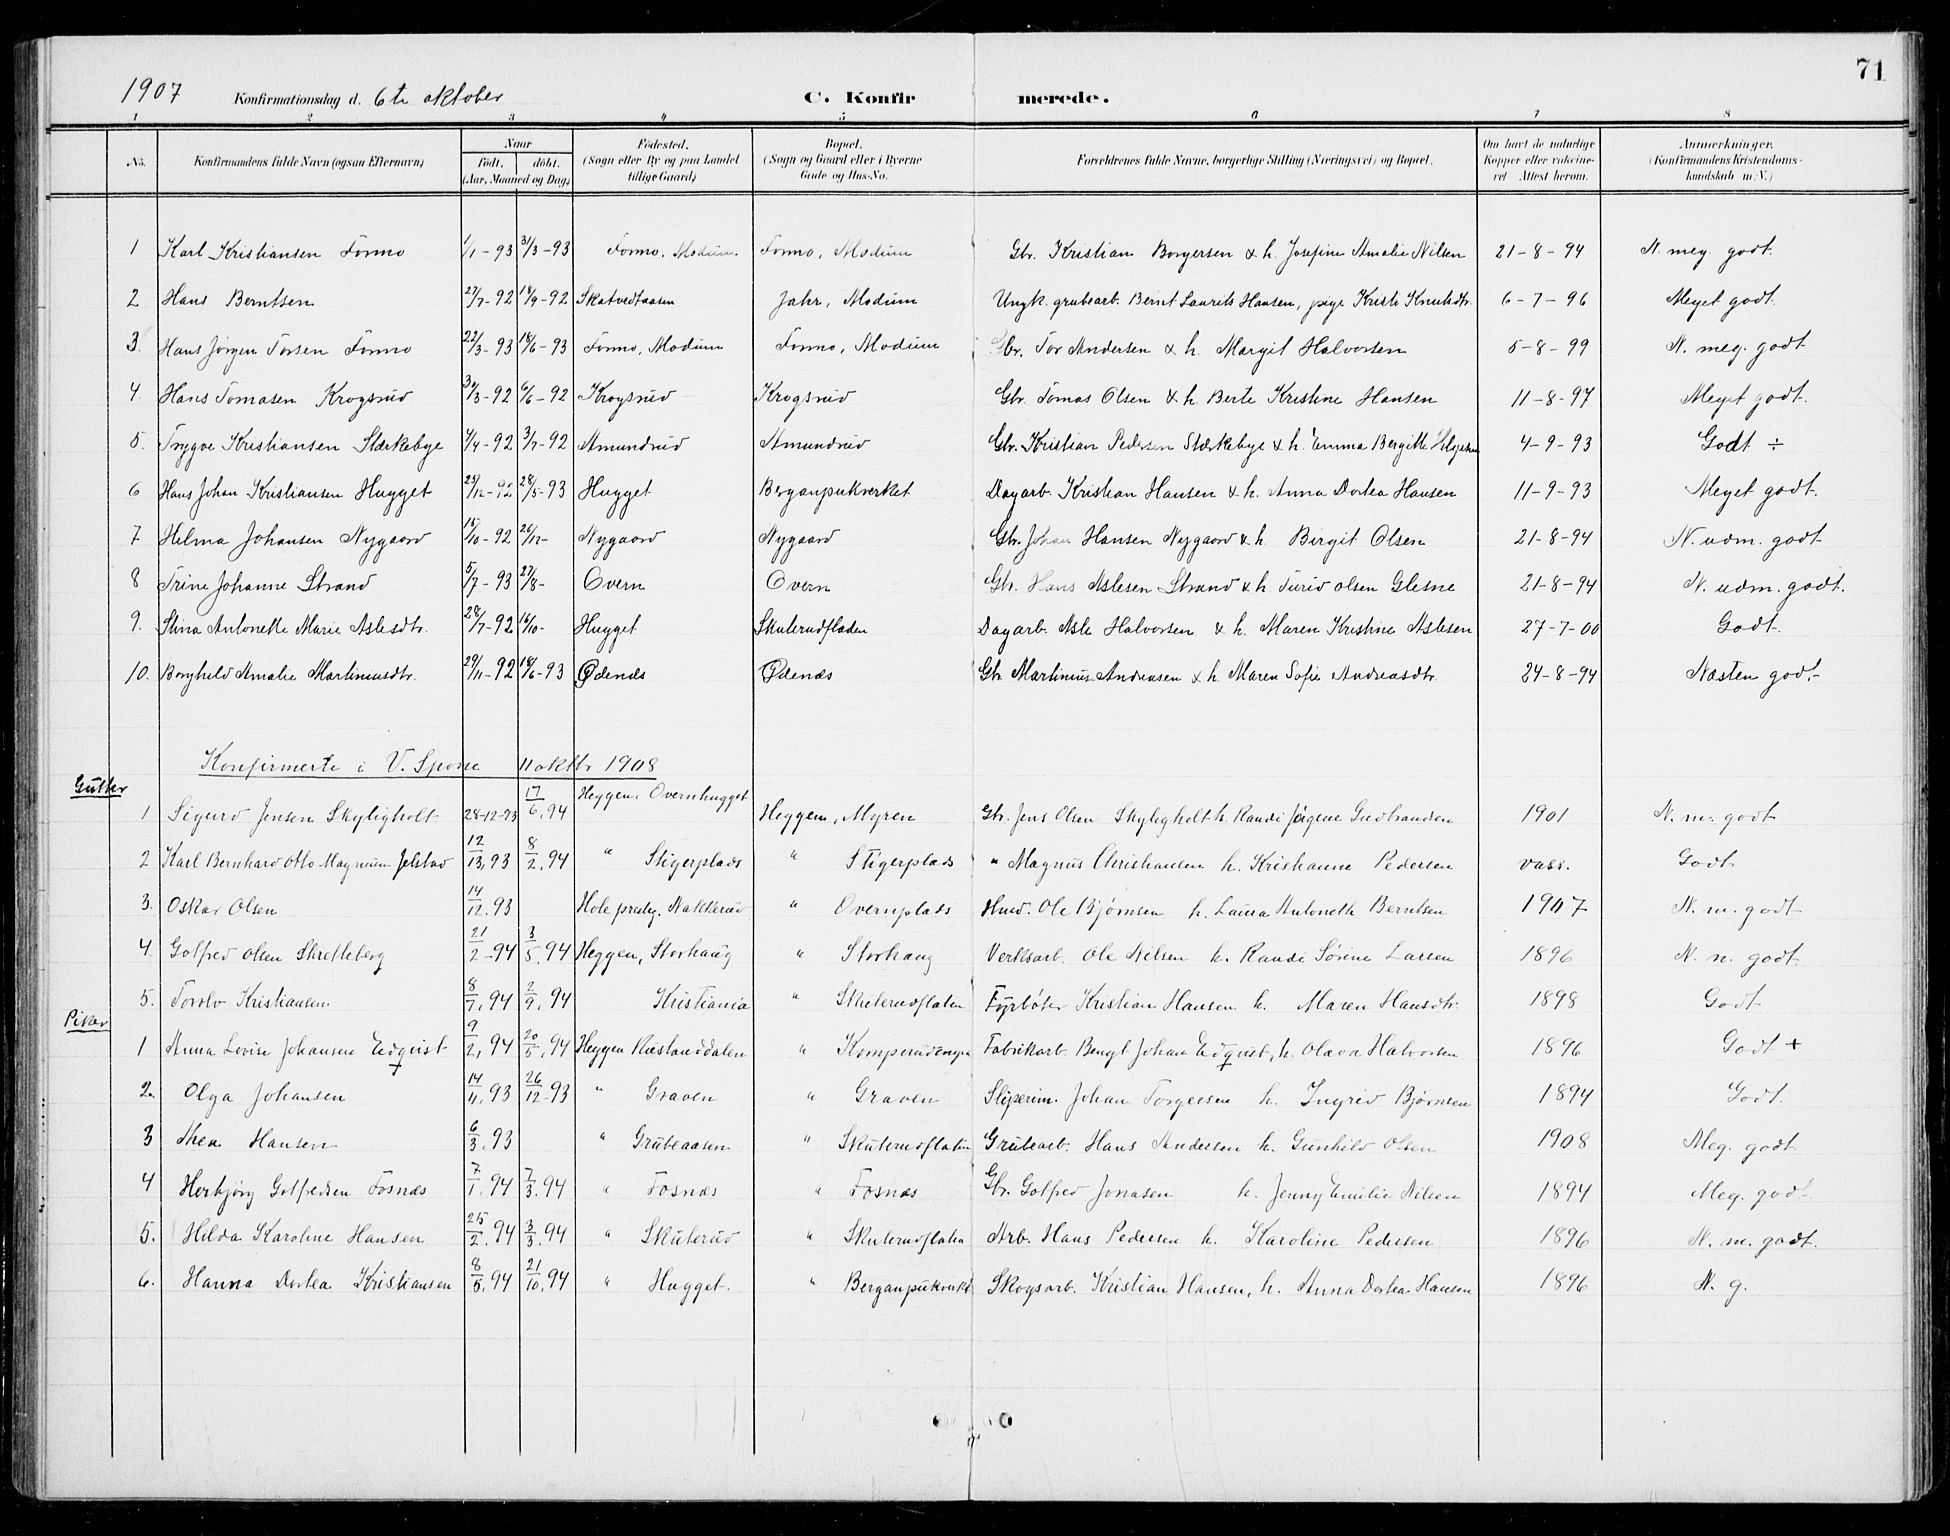 71
1907 Konfirmationsdag d. 6te oktober C. Konfirmerede.
1 2 3 4 5 6 7 8
No. Konfirmandens fulde Navn (ogsaa Efternavn) Naar født. døbt. (Aar, Maaned og Dag) Fødested. (Sogn eller By og paa Landet tillige Gaard) Bopæl. (Sogn og Gaard eller i Byerne Gade og Hus-No. Forældrenes fulde Navne, borgerlige Stilling (Næringsvei) og Bopæl. Om havt de naturlige Kopper eller vakcineret Attest herom. Anmerkninger. (Konfirmandens Kristendomskundskab m. V.)
1 Karl Kristiansen Formo 1/1-93 31/3-93 Formo, Modum Formo, Modum Gbr. Kristian Borgersen & h. Josefine Amalie Nilsen 21-8-94 N. meg. godt.
2 Hans Berntsen 27/7-92 18/9-92 Skatvedtaasen Jahr, Modum Ungk. grubearb. Bernt Laurits Hansen, pige Kristi Knutsdtr. 6-7-96 Meget godt.
3. Hans Jørgen Torsen Formo 22/3-93 18/6-93 Formo, Modum Formo, Modum Gbr. Tor Andersen & h. Margit Halvorsen 5-8-99 N. meg. godt
4. Hans Tomasen Krogsrud 30/3-92 6/6-92 Krogsrud Krogsrud Gbr. Tomas Olsen & h. Berte Kristine Hansen 11-8-97 Meget godt.
5. Trygve Kristiansen Stærkebye 4/4-92 3/7-92 Amundrud Amundrud Gbr. Kristian Pedersen Stærkebye & h. Emma Bergitte 4-9-93 Godt ÷
6 Hans Johan Kristiansen Hugget 25/12-92 28/5-93 Hugget Berganpukverket Dagarb. Kristian Hansen & h. Anna Dortea Hansen 11-9-93 Meget godt.
7 Helma Johansen Nygaard 15/10-92 26/12- Nygaard Nygaard Gbr. Johan Hansen Nygaard & h. Birgit Olsen 21-8-94 N. udm. godt
8 Trine Johanne Strand 5/7-93 27/8- Overn Overn Gbr. Hans Aslesen Strand & h. Turid Olsen Glesne 21-8-94 N. udm. godt.
9. Stina Antonette Marie Aslesdtr. 28/7-92 16/10- Hugget Skuterudfladen Dagarb. Asle Halvorsen & h. Maren Kristine Aslesen 27-7-00 Godt.
10. Borghild Amalie Martiniusdtr. 29/11-92 18/6-93 Ødenæs Ødenæs Gbr. Martinius Andreasen & h. Maren Sofie Andreasdtr. 24-8-94 Næsten godt.-
Konfirmerte i V. Spone 11 oktbr 1908
Gutter
1 Sigurd Jensen Skyligholt 28-12-93 17/6.94 Heggen, Overnhugget Heggen, Myren Gbr. Jens Olsen Skyligholt h. Randi Jørgine Gudbrandsen 1901 N. m. godt
2 Karl Bernhard Otto Magnum Jelstad 12/13.93 8/2.94 " Stigerplads " Stigerplads " Magnus Christiansen h. Kristianne Pedersen vacc. Godt
3. Oskar Olsen 14/12.93 Hole prestg. Nakkerud " Overnplads Hmd. Ole Bjørnsen h. Laura Antonette Berntsen 1907 N. m. godt
4. Golfred Olsen Skretteberg 21/2-94 3/5.94 Heggen, Storhaug " Storhaug Verksarb. Ole Nilsen h. Randi Sørine Larsen 1896 N. n. godt.
5. Torolv Kristiansen 8/7.94 2/9.94 Kristiania " Skuterudflaten Fyrbøter Kristian Hansen h. Maren Hansdtr. 1898 Godt
Piker
1 Anna Lovise Johansen Edquist 9/2.94 20/5.94 Heggen Næslanddalen " Komperudengen Fabrikarb. Bengt Johan Edquist, h. Olava Halvorsen 1896 Godt +
2. Olga Johansen 14/11.93 26/12-93 " Graven " Graven Sliperim. Johan Torgersen h. Ingrid Bjørnsen 1894 Godt.
3 Thea Hansen 6/3.93 " Grubeaasen " Skuterudflaten Grubearb. Hans Andersen h. Gunhild Olsen 1908 Meg. godt.
4 Herbjørg Golfredsen Fosnæs 7/1.94 7/3.94 " Fosnæs " Fosnæs Gbr. Golfred Jonasen h. Jenny Emilie Nilsen 1894 Meg. godt.
5. Hilda Karoline Hansen 25/2.94 3/3.94 " Skuterud " Skuterudflaten Arb. Hans Pedersen h. Karoline Pedersen 1896 N. m. godt.
6. Hanna Dortea Kristiansen 8/5.94 21/10.94 " Hugget. " Berganpukverket Skogsarb. Kristian Hansen, h. Anna Dortea Hansen 1896 N. g.